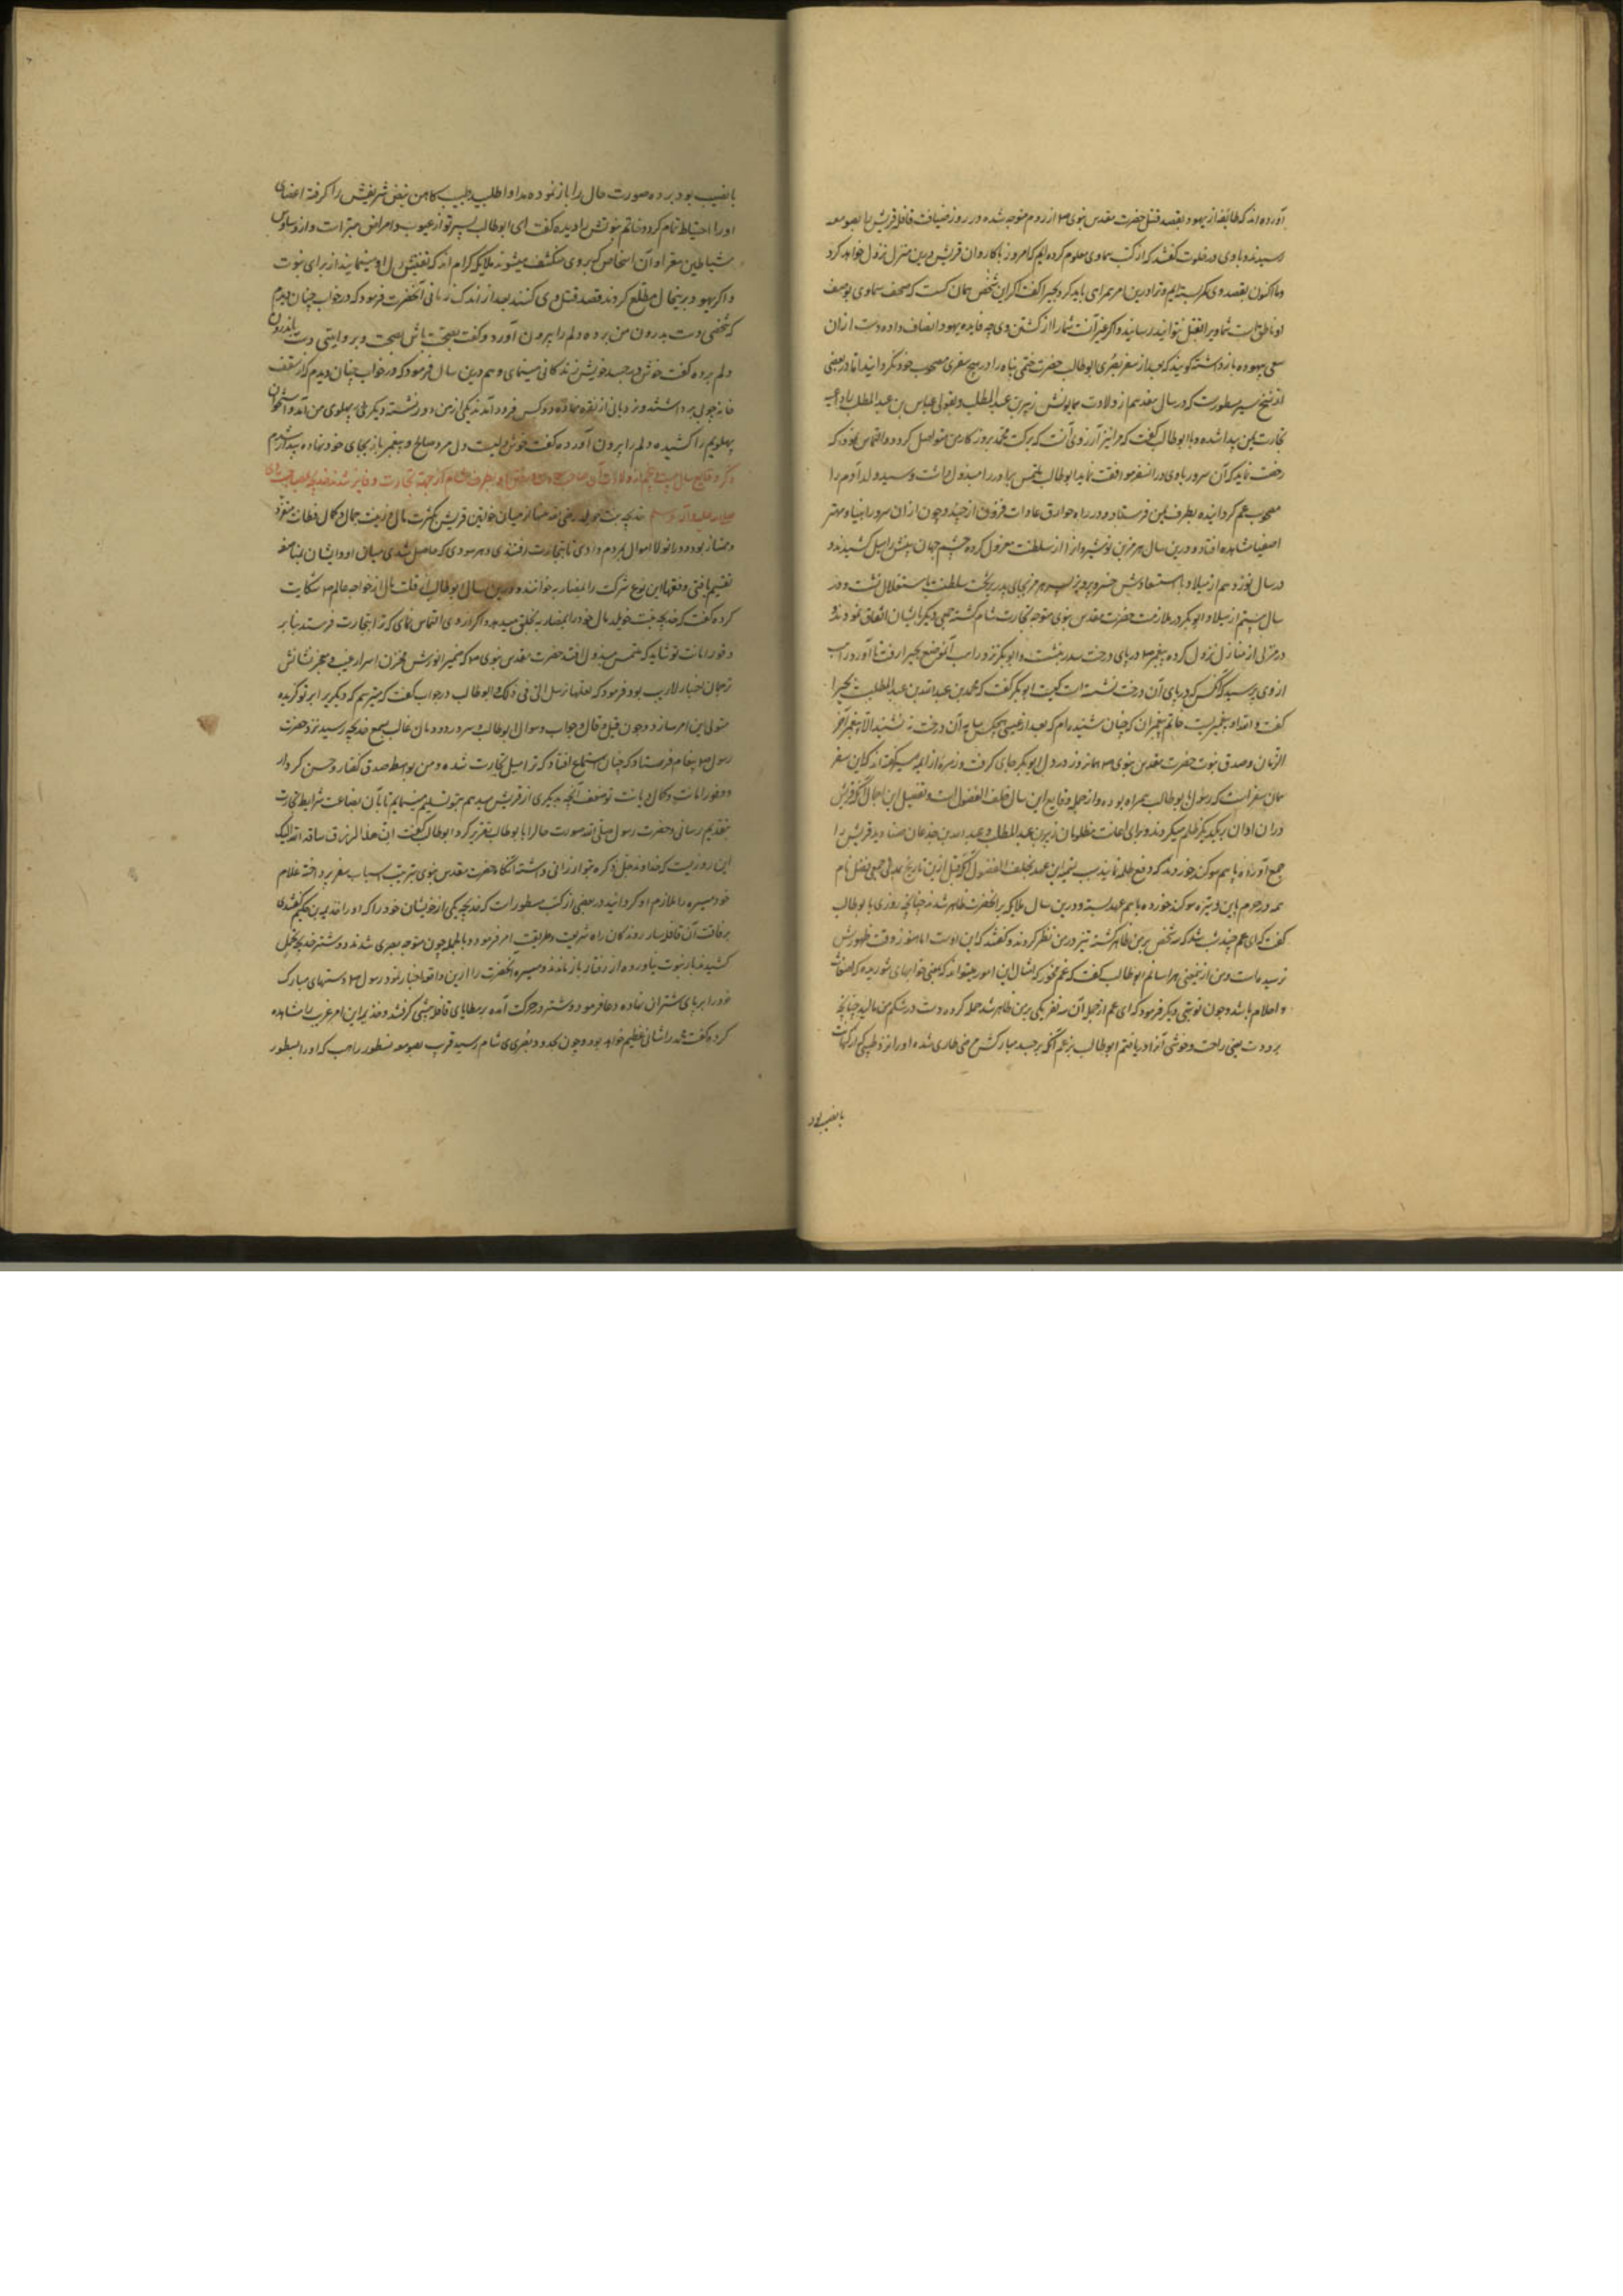 آورده اند که طایفهٔ از یهود بقصد قتل حضرت مقدس نبوی صم از روم متوجه شده در روز ضیافت قافلهٔ قریش بصومعه
رسیدند و با وی در خلوت گفتند که از کتب سماوی معلوم کرده ایم که امروز با کاروان قریش درین منزل نزول خواهد کرد
وما اکنون بقصد وی کمر بسته ایم و ترا درین امر همراهی باید کرد بحیرا گفت اگر این شخص همان کست که صحف سماوی بوصف
او ناطق است شما ویرا بقتل نتوانید رسانید و اگر غیر آنست شما را از کشتن وی چه فایده یهود انصاف داده دست از آن
سعی بیهوده بازداشتند گویند که بعد از سفر بصری ابوطالب حضرت ختمی پناه را در هیچ سفری مصحوب خود نگردانید اما در بعضی
از نسخ سیر مسطورست که در سال هفدهم از ولادت همایونش زبیر بن عبد المطلب و بقولی عباس بن عبد المطلب را داعیه
تجارت یمن پیدا شده و با ابوطالب گفت که مرا نیز آرزوی آنست که برکت محمد بروزکار من متواصل گردد و التماس نمود که
رخصت نماید که آن سرور با وی در آن سفر موافقت نماید ابوطالب ملتمس برادر را مبذول داشت و سید ولد آدم را
مصحوب عم گردانیده بطرف یمن فرستاد و در راه خوارق عادات فزون از حیز و چون از آن سرور انبیا و مهتر
اصفیا مشاهده افتاد و درین سال هرمز بن نوشیروان را از سلطنت معزول کرده چشم جهان بینش را میل کشیدند و
در سال نوزدهم از میلاد با استعادتش خسرو پرویز پسر هرمز بجای پدر بر تخت سلطنت باستقلال نشست و در
سال بیستم از میلاد ابوبکر در ملازمت حضرت مقدس نبوی متوجه تجارت شام گشته جمعی دیگر با ایشان اتفاق نمودند و
در منزلی از منازل نزول کرده پیغمبر صم در پای درخت سدر بنشست و ابوبکر نزد راهب آنموضع بحیرا رفت تا آورد راهب
از وی پرسید که آنکس که در پای آن درخت نشسته است کیست ابوبکر گفت که محمد بن عبد الله بن عبد المطلب بحیرا
گفت والله او پیغمبریست خاتم پیغمبران که چنان شنیده ام که بعد از عیسی هیچکس بسایه آن درخت ننشیند الا پیغمبر آخر
الزمان و صدق نبوت حضرت مقدس نبوی صم همانروز در دل ابوبکر جای گرفت و زمره از ایمه سیر گفته اند که این سفر
همان سفر است که رسول با ابوطالب همراه بوده و از جمله وقایع این سال حلف الفضول است و تفصیل این اجمال آنکه قریش
در آن اوان بر یکدیگر ظلم میکردند و برای اعانت مظلومان زبیر بن عبد المطلب و عبد الله بن جذعان صنادید قریش را
جمع آورده با هم سوگند خوردند که دفع ظلمه نمایند سبب تسمیه این عهد بحلف الفضول آنکه قبل ازین تاریخ جمعی فضل نام
همه در حرم باین وتیره سوگند خورده باهم عهد بسته و درین سال ملایکه بر آنحضرت ظاهر شدند چنانچه روزی با ابوطالب
گفت که ای عم چند شب شد که سه شخص بر من ظاهر گشته تیز در من نظر کردند و گفتند که این اوست اما هنوز وقت ظهورش
نرسیده است و من از ینمعنی هراسانم ابوطالب گفت که غم مخور که امثال این امور میتواند که بعضی خوابهای شوریده که اضغاث
و احلام باشد و چون نوبتی دیگر فرمود که ای عم از جمله آن سه نفر یکی بر من ظاهر شد حمله کرده دست در شکم من مالید چنانچه
برودت یعنی راحت و خوشی آنرا دریافتم ابوطالب بزعم آنکه بر جسد مبارکش مرضی طاری شده او را نزد طبیبی که از کهانت
بانصیب بود
بانصیب بود برده صورت حال را باز نموده مداوا طلبید طبیب کاهن نبض شریفش را گرفته اعضای
او را احتیاط تمام کرده و خاتم نبوتش را دیده گفت ای ابوطالب پسر تو از عیوب و امراض مبراست و از وساوس
شیاطین معرا و آن اشخاص که بر وی منکشف میشوند ملایکه کرام اند که تفتیش دل او مینمایند از برای نبوت
و اگر یهود برینحال مطلع گردند قصد قتل وی کنند بعد از اندک زمانی آنحضرت فرمود که در خواب چنان دیدم
که شخصی دست بدرون من برده و دلم را بیرون آورد و گفت
دلم برده گفت خوش در جسد خویش زندگانی مینمای و هم درین سال فرمود که در خواب چنان دیدم که از سقف
خانه چوبی برداشتند و نردبانی از نقره نهاده دو کس فرود آمدند یکی از من دور نشسته و دیگری پهلوی من آمد و استخوان
پهلویم را کشیده دلم را بیرون آورده گفت خوش دلیست دل مرد صالح و پیغمبر باز بجای خود نهاده بیدار شدم
ذکر وقایع سال بیست و پنجم از ولادت آن صاحب
صلی الله علیه و آله و سلم خدیجه بنت خویلد رضی الله عنها از میان خواتین قریش بکثرت مال و زینت جمال و کمال فطانت متفرد
و ممتاز بوده و در آنولا اموال بمردم دادی تا بتجارت رفتندی و هر سودی که حاصل شدی میان او و ایشان بمناصفه
تقسیم یافتی و فقها این نوع شرکت را مضاربه خوانند و درین سال ابوطالب از قلت مال از خواجه عالم صم شکایت
کرده گفت که خدیجه بنت خویلد مال خود را بمضاربه بخلق میدهد و اگر از وی التماس نمای که ترا بتجارت فرستد بنابر
وفور امانت تو شاید که ملتمس مبذول افتد حضرت مقدس نبوی صم که ضمیر انورش مخزن اسرار غیب و معجز نشانش
ترجمان اخبار لاریب بود فرمود که لعلها ترسل الی فی ذلک ابوطالب در جواب گفت که میترسم که دیگریرا بر تو گزیده
متولی این امر سازد و چون قیل و قال و جواب و سوال ابوطالب و سرور دودمان غالب بسمع خدیجه رسید نزد حضرت
رسول صم پیغام فرستاد که چنان استماع افتاد که ترا میل تجارت شده و من بواسطه صدق گفتار و حسن کردار
و وفور امانت و کمال دیانت تو ضعف آنچه بدیگری از قریش میدهم بتو تسلیم مینمایم تا بآن بضاعت شرایط تجارت
بتقدیم رسانی و حضرت رسول صلی الله صورت حال را با ابوطالب تقریر کرد ابوطالب گفت ان هذا لرزق ساقه الله الیک
این روزیست که خداوند جل ذکره بتو ارزانی داشته آنگاه حضرت مقدس نبوی بترتیب اسباب سفر پرداخته غلام
خود میسره را ملازم او گردانید و در بعضی از کتب مسطور است که خدیجه یکی از خویشان خود را که او را خذیمه بن حکیم گفتندی
برفاقت آن قافله سار روندگان راه شریعت و طریقت امر فرمود و بالجمله چون متوجه بصری شدند دو شتر خدیجه
کشیدند بار نبوت نیاورده از رفتار باز ماندند و میسره آنحضرت را ازین واقعه اخبار نمود رسول صم دستهای مبارک
خود را بر پای شتران نهاده دعا فرمود و شتر در حرکت آمده بر مطایای قافله پیشی گرفتند و خذیمه این امر غریب را مشاهده
کرده گفت محمد را شانی عظیم خواهد بود و چون بحدود بصری شام رسید قرب بصومعه نسطور راهب که او را نسطور